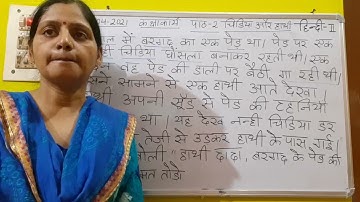 04-2021 कक्षाकार्य पाठ-2 चिड़िया और हाथी हिन्दी-II
में बरगद का एक पेड़ था। पेड़ पर एक
चिड़िया घोंसला बनाकर रहती थी।
वह पेड़ की डाली पर बैठी गा रही थी।
सामने से एक हाथी आते देखा।
अपनी सूँड से पेड़ की टहनियाँ
था। यह देख नन्ही चिड़िया डर
तेजी से उड़कर हाथी के पास गई।
बोली "हाथी दादा, बरगद के पेड़ की
मत तोड़ो